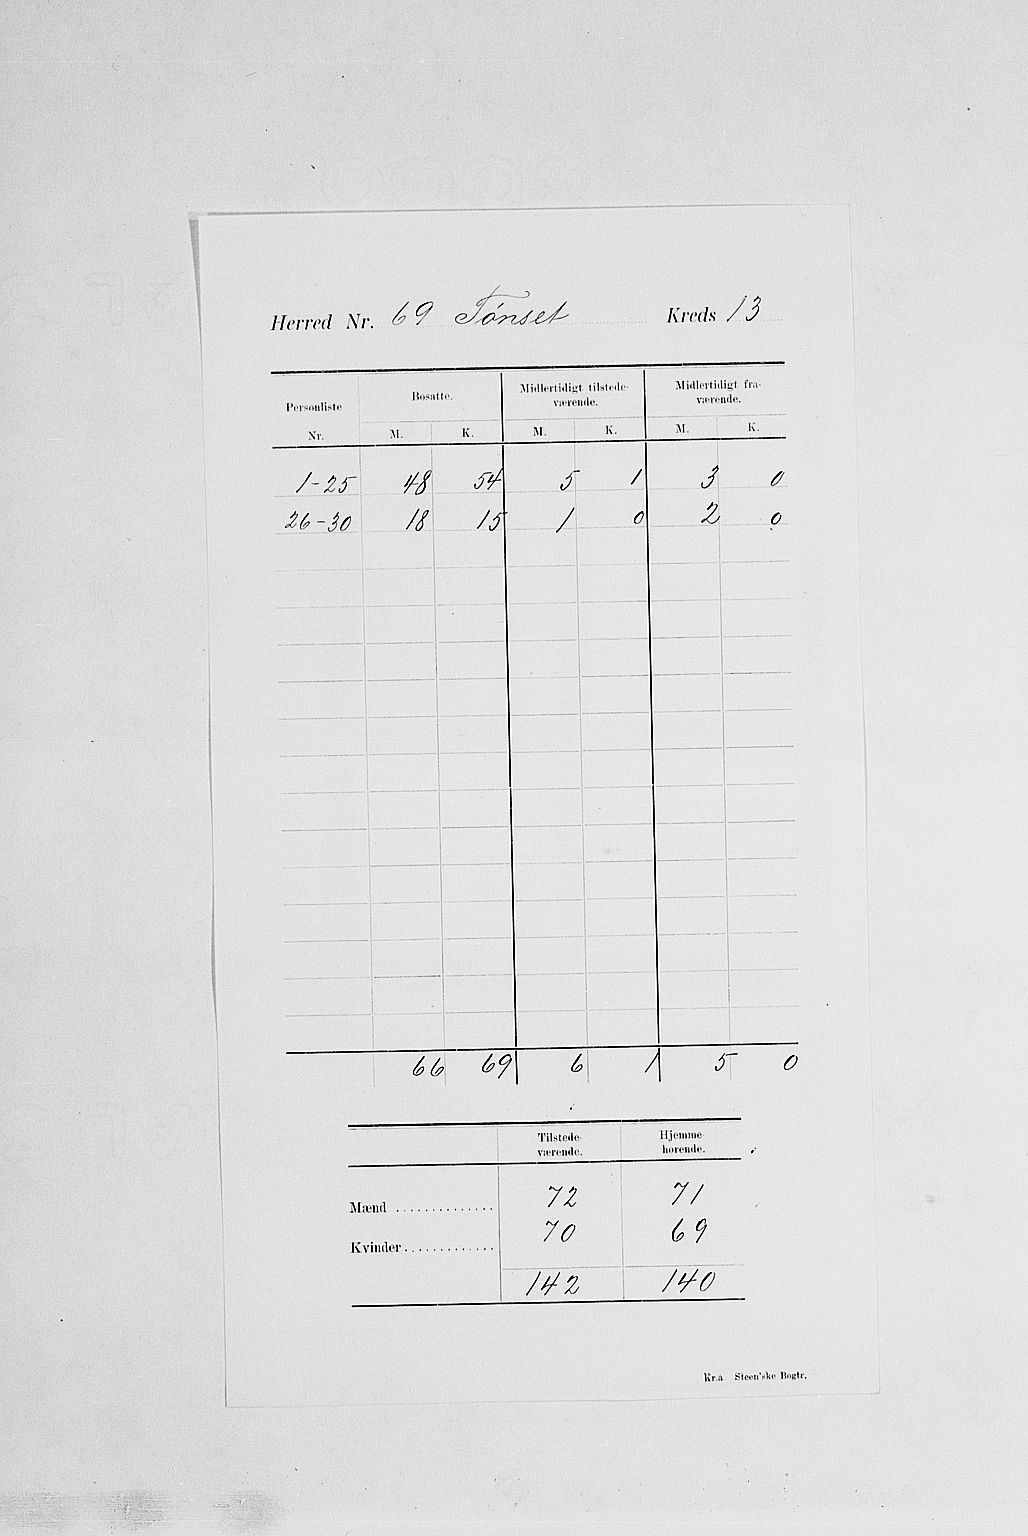 Herred Nr. 69 Tønset Kreds 13
Personliste Nr. Bosatte. Midlertidigt tilstede- værende. Midlertidigt fra- værende.
M. K. M. K. M. K.
1-25 48 54 5 1 3 0
26-30 18 15 1 0 2 0
66 69 6 1 5 0
Tilstede- værende. Hjemme- hørende.
Mænd .............. 72 71
Kvinder............. 70 69
142 140
Kr.a Steen'ske Bogtr.